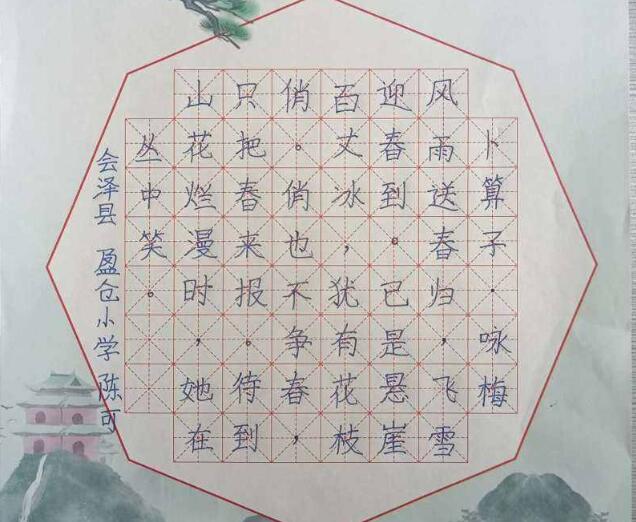 卜算子·咏梅
风雨送春归,飞雪
迎春到。已是悬崖
百丈冰,犹有花枝
俏。俏也不争春,
只把春来报。待到
山花烂漫时,她在
丛中笑。
会泽县 盈仓小学 陈可